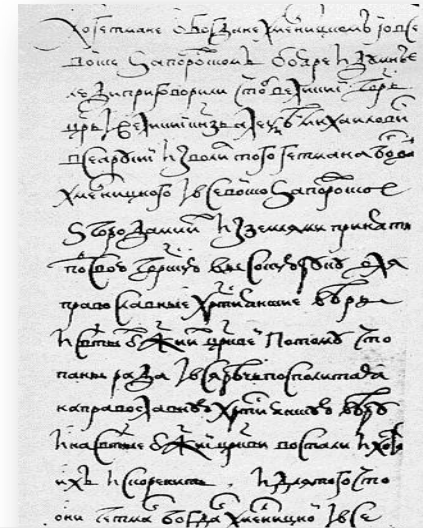 А о гетмане о Богдане Хмелницком и о все
Войске Запорожском бояре и думные
люди приговорили чтоб великий госуда
царь и великий князь Алексей Михайлович
всеа Русии изволил того гетмана Богдана
Хмелницкого и все Войско Запорожское
з городами и з землями принять
под свою государскую высокую руку для
православные християнские веры
и святых божиих церквей потому что
паны рада и вся Речь Посполитая
на православную християнскую веру
и на святые божии церкви востали и хотят
их искоренить и для того что
они гетмана Богдана Хмелницкого и все